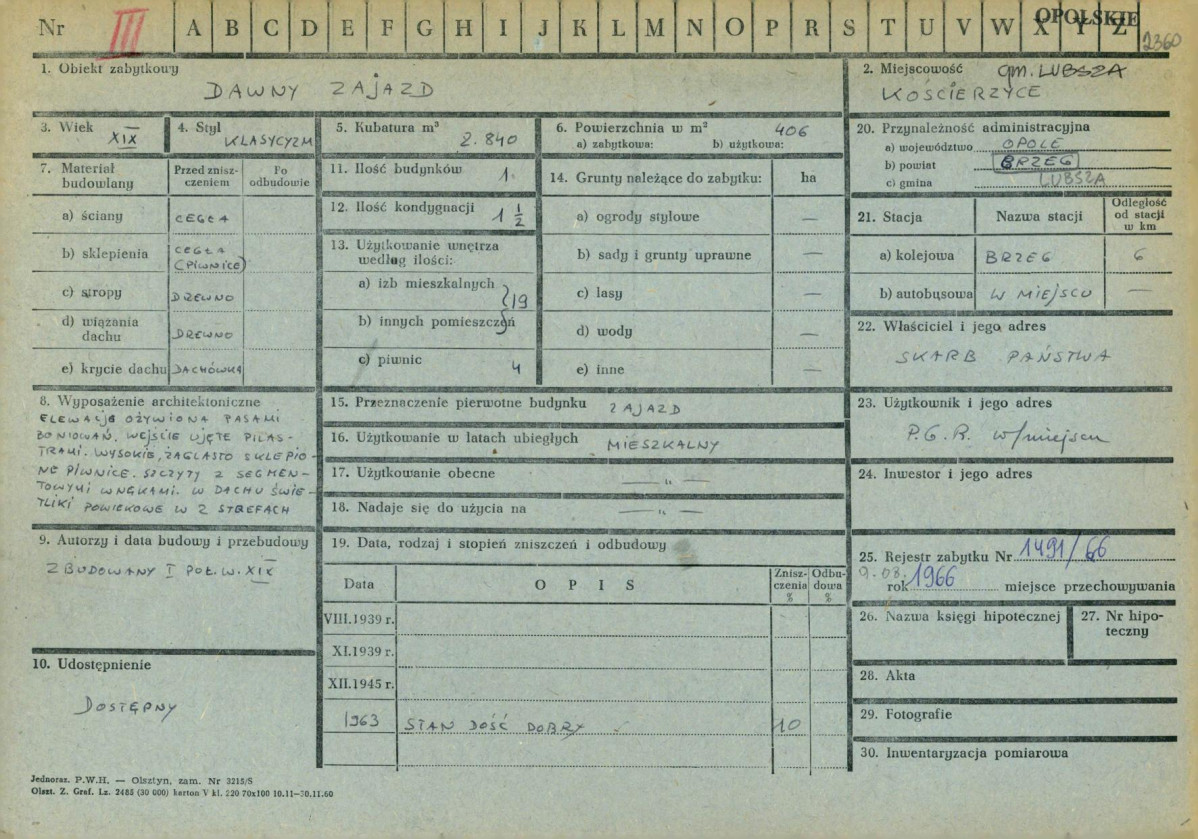 Nr III A B C D E F G H I J K L M N O P R S T U V W X Y Z OPOLSKIE 2360
1. Obiekt zabytkowy
DAWNY ZAJAZD
2. Miejscowość gm. LUBSZA
KOŚCIERZYCE
3. Wiek
XIX
4. Styl
KLASYCYZM
5. Kubatura m³
2.840
6. Powierzchnia w m² 406
a) zabytkowa: b) użytkowa:
20. Przynależność administracyjna
a) województwo OPOLE
b) powiat BRZEG
c) gmina LUBSZA
7. Materiał budowlany
Przed znisz-
czeniem
Po
odbudowie
a) ściany CEGŁA
b) sklepienia CEGŁA
(PIWNICE)
c) stropy DREWNO
d) wiązania
dachu DREWNO
e) krycie dachu DACHÓWKA
11. Ilość budynków 1.
12. Ilość kondygnacji 1 1/2
13. Użytkowanie wnętrza
według ilości:
a) izb mieszkalnych
b) innych pomieszczeń } 19
c) piwnic 4
14. Grunty należące do zabytku: ha
a) ogrody stylowe —
b) sady i grunty uprawne —
c) lasy —
d) wody —
e) inne —
21. Stacja Nazwa stacji Odległość
od stacji
w km
a) kolejowa BRZEG 6
b) autobusowa W MIEJSCU —
22. Właściciel i jego adres
SKARB PAŃSTWA
8. Wyposażenie architektoniczne
ELEWACJE OŻYWIONA PASAMI
BONIOWAŃ. WEJŚCIE UJĘTE PILAS-
TRAMI. WYSOKIE, ŻAGLASTO SKLEPIO-
NE PIWNICE. SZCZYTY Z SEGMEN-
TOWYMI WNĘKAMI. W DACHU ŚWIE-
TLIKI POWIEKOWE W 2 STREFACH
15. Przeznaczenie pierwotne budynku ZAJAZD
16. Użytkowanie w latach ubiegłych MIESZKALNY
17. Użytkowanie obecne — " —
18. Nadaje się do użycia na — " —
23. Użytkownik i jego adres
P.G.R. w/miejscu
24. Inwestor i jego adres
9. Autorzy i data budowy i przebudowy
ZBUDOWANY I POŁ. W. XIX
10. Udostępnienie
DOSTĘPNY
19. Data, rodzaj i stopień zniszczeń i odbudowy
Data OPIS Znisz-
czenia
% Odbu-
dowa
%
VIII.1939 r.
XI.1939 r.
XII.1945 r.
1963 STAN DOŚĆ DOBRY 10
25. Rejestr zabytku Nr 1491/66
9.08.
rok 1966 miejsce przechowywania
26. Nazwa księgi hipotecznej
27. Nr hipo-
teczny
28. Akta
29. Fotografie
30. Inwentaryzacja pomiarowa
Jednoraz. P.W.H. — Olsztyn, zam. Nr 3215/S
Olszt. Z. Graf. Lz. 2485 (30 000) karton V kl. 220 70x100 10.11—30.11.60